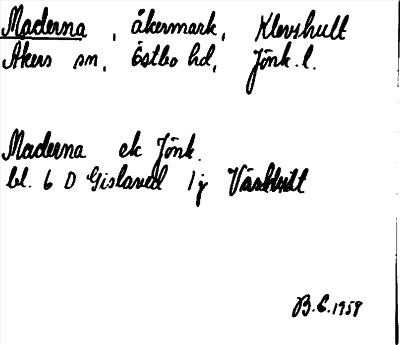 Maderna, åkermark, Klevshult
Åkers sn, Östbo hd, Jönk. l.
Maderna ek Jönk.
bl. 6 D Gislaved 1j
B.E. 1959